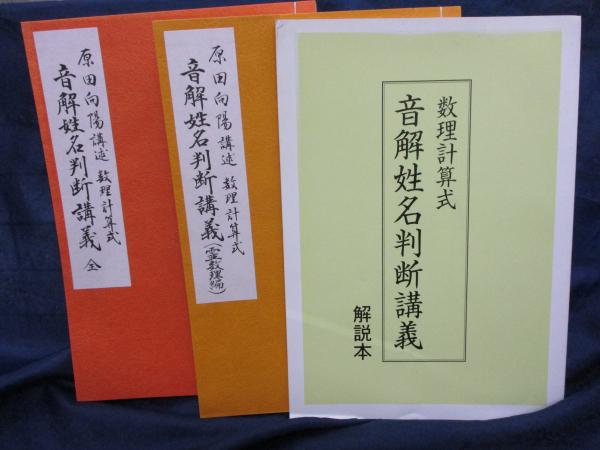 原田向陽講述 数理計算式
音解姓名判断講義 全
原田向陽講述 数理計算式
音解姓名判断講義(霊数理編)
数理計算式
音解姓名判断講義
解説本